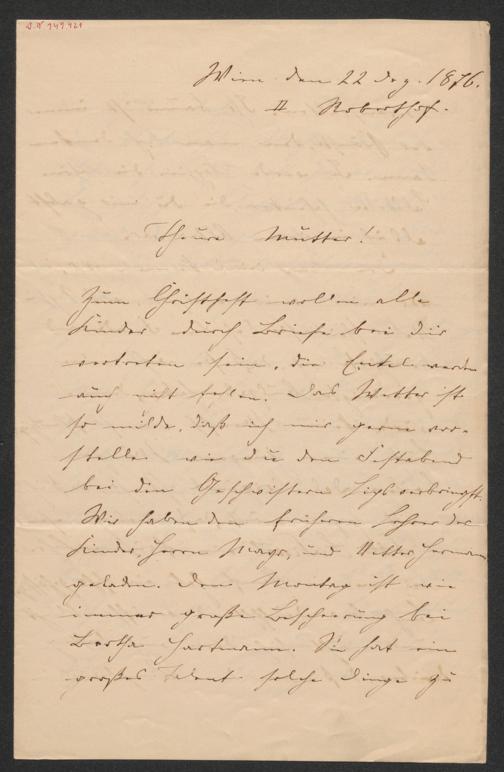 Wien den 22 Dez. 1876.
II Roberthof.
Theure Mutter!
Zum Christfest wollen alle
Kinder durch Briefe bei dir
vertreten sein, die Enkel werden
auch nicht fehlen. Das Wetter ist
so milde, daß ich mir gerne vor-
stelle wie du den Festabend
bei den Geschwistern verbringst.
Wir haben den früheren Lehrer der
Kinder, Herrn Mayr, und Vetter Hermann
geladen. Den Montag ist wie
immer große Bescheerung bei
Bertha Hartmann. Sie hat ein
großes Talent solche Dinge zu